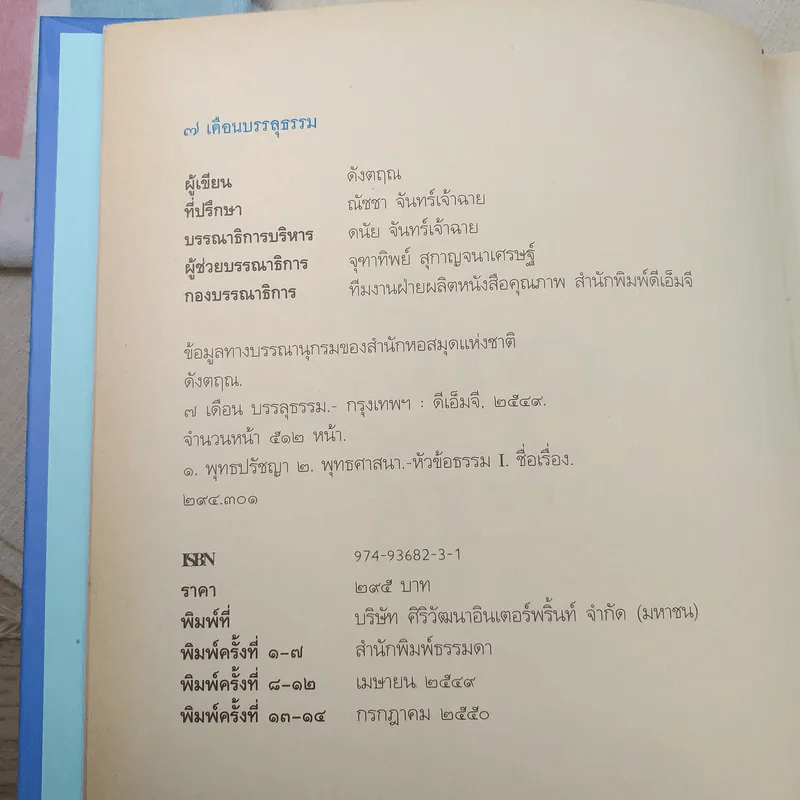 ๗ เดือนบรรลุธรรม
ผู้เขียน ดังตฤณ
ที่ปรึกษา ณัชชา จันทร์เจ้าฉาย
บรรณาธิการบริหาร ดนัย จันทร์เจ้าฉาย
ผู้ช่วยบรรณาธิการ จุฑาทิพย์ สุกาญจนาเศรษฐ์
กองบรรณาธิการ ทีมงานฝ่ายผลิตหนังสือคุณภาพ สำนักพิมพ์ดีเอ็มจี
ข้อมูลทางบรรณานุกรมของสำนักหอสมุดแห่งชาติ
ดังตฤณ.
๗ เดือน บรรลุธรรม.- กรุงเทพฯ : ดีเอ็มจี, ๒๕๔๙.
จำนวนหน้า ๕๑๒ หน้า.
๑. พุทธปรัชญา ๒. พุทธศาสนา.-หัวข้อธรรม I. ชื่อเรื่อง.
๒๙๔.๓๐๑
ISBN 974-93682-3-1
ราคา ๒๙๕ บาท
พิมพ์ที่ บริษัท ศิริวัฒนาอินเตอร์พริ้นท์ จำกัด (มหาชน)
พิมพ์ครั้งที่ ๑-๗ สำนักพิมพ์ธรรมดา
พิมพ์ครั้งที่ ๘-๑๒ เมษายน ๒๕๔๙
พิมพ์ครั้งที่ ๑๓-๑๔ กรกฎาคม ๒๕๕๐